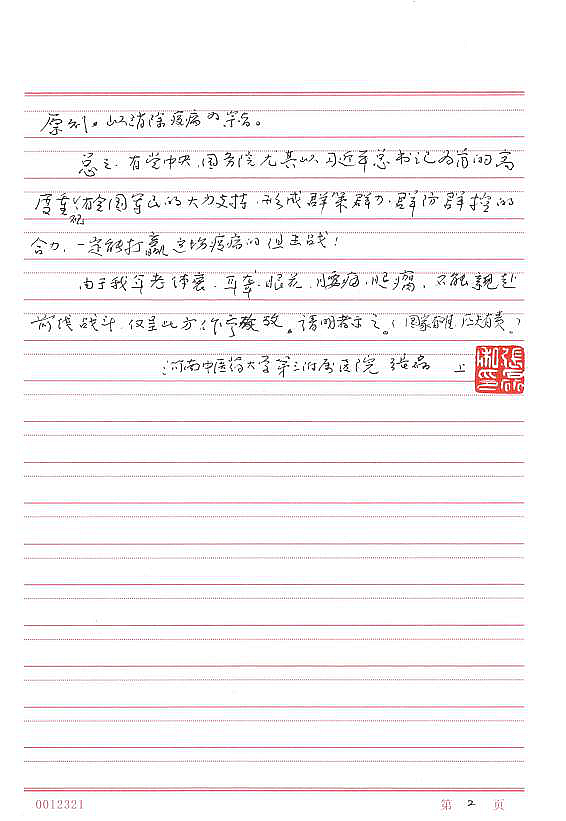 原则。以消除疫病为宗旨。
总之，有党中央、国务院尤其以习近平总书记为首的高
度重视，有全国军民的大力支持，形成群策群力，群防群控的
合力，一定能打赢这场疫病的阻击战！
由于我年老体衰，耳聋、眼花、腰痛、腿痛，不能亲赴
前线战斗，仅呈此方
请明者示之。（国家有难，匹夫有责。）
河南中医药大学第三附属医院 张磊 上
張磊私印
0012321 第 2 页